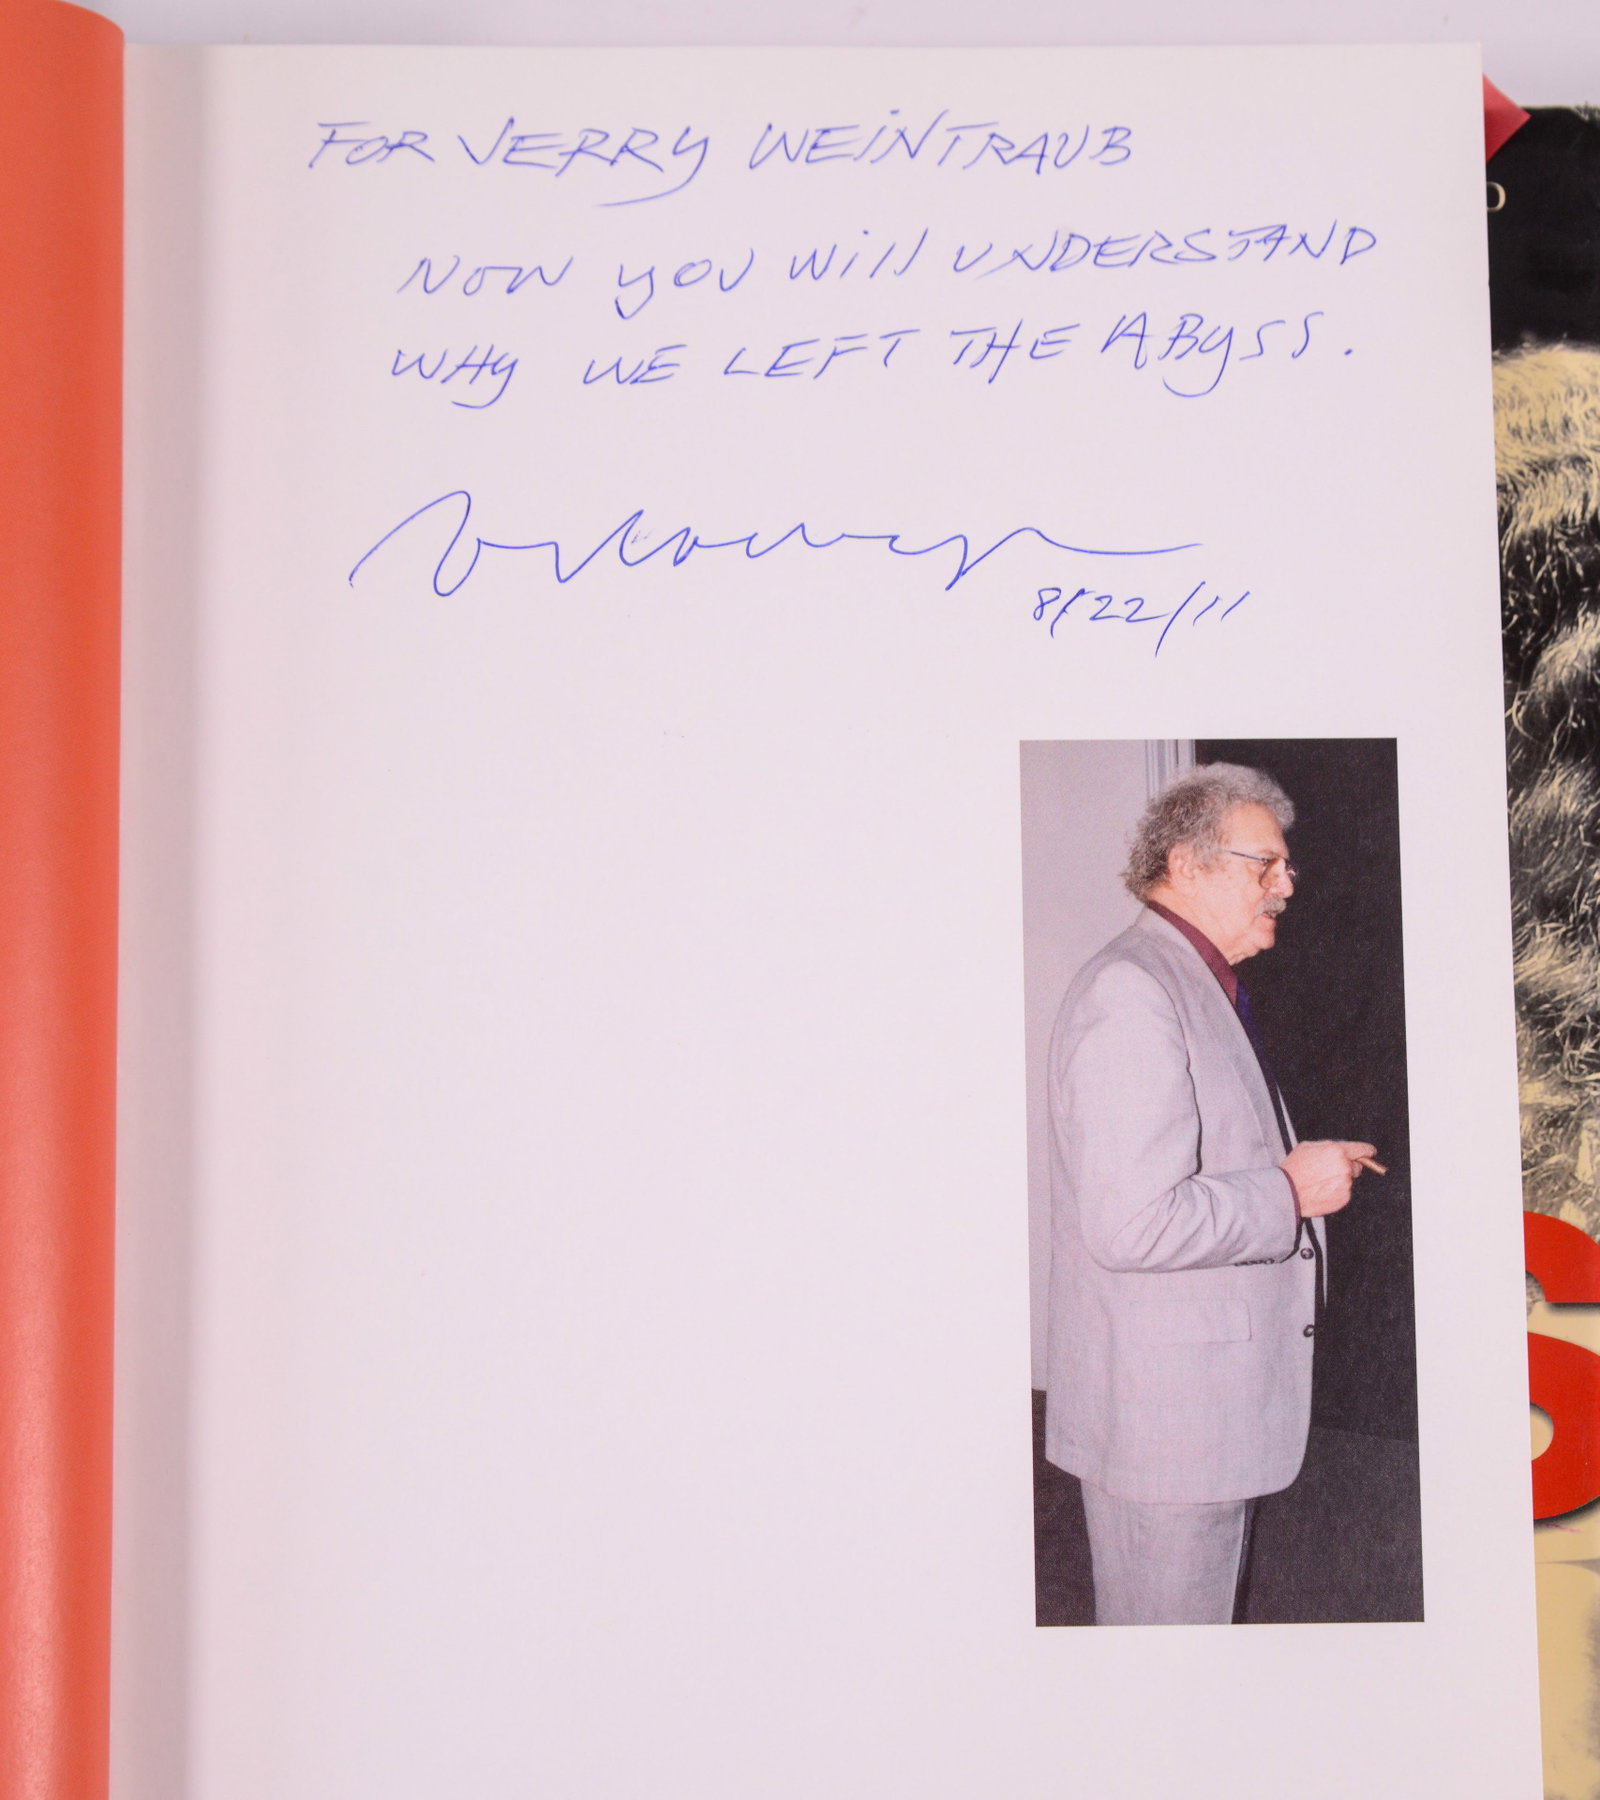 FOR JERRY WEINTRAUB
NOW YOU Will UNDERSTAND
WHY WE LEFT THE ABYSS.
8/22/11
O
S